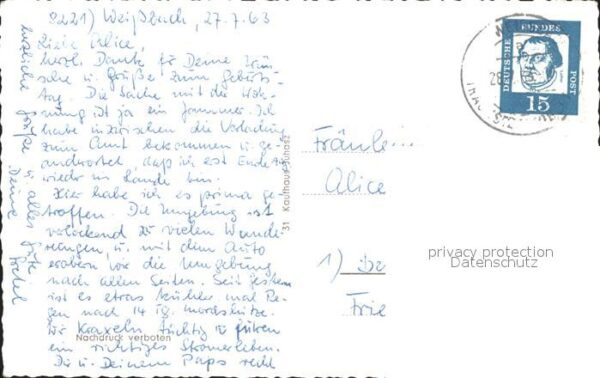 8221) Weißbach, 27.7.63
Liebe Alice,
herzl. Dank für Deine Wün-
sche u. Grüße zum Geburts-
tag. Die Sache mit der Woh-
nung ist ja ein Jammer. Ich
habe inzwischen die Vorladung
zum Amt bekommen u. ge-
antwortet, daß ich erst Ende
wieder im Lande bin.
Hier habe ich es prima ge-
troffen. Die Umgebung ist
verlockend zu vielen Wande-
rungen, u. mit dem Auto
erobern wir die Umgebung
nach allen Seiten. Seit gestern
ist es etwas kühler mal Re-
gen nach 14 tg. Mordshitze.
Wir Kraxeln tüchtig u. führen
ein richtiges Stromerleben.
Dir u. Deinem Paps recht
herzliche Grüße u. alles Gute
Deine
Nachdruck verboten
31 Kaufhaus Juhasz
DEUTSCHE BUNDES POST
15
Fräulein
Alice
1) Be
Frie
privacy protection
Datenschutz